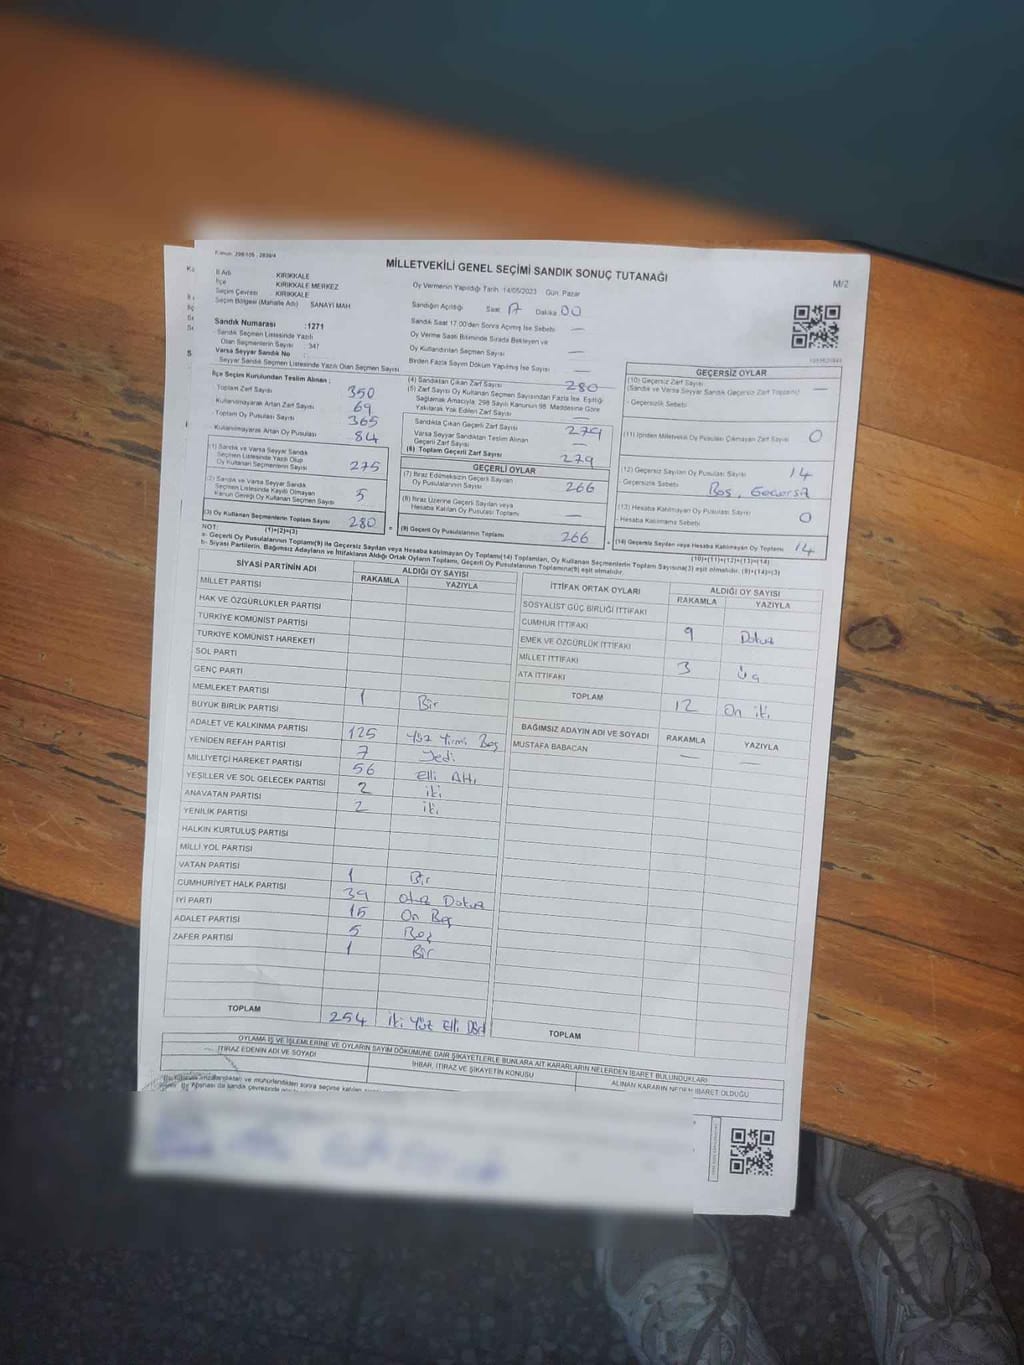 Kanun: 298/105 , 2839/4
MİLLETVEKİLİ GENEL SEÇİMİ SANDIK SONUÇ TUTANAĞI
M/2
İl Adı KIRIKKALE
İlçe KIRIKKALE MERKEZ
Seçim Çevresi KIRIKKALE
Seçim Bölgesi (Mahalle Adı) SANAYİ MAH
Oy Vermenin Yapıldığı Tarih 14/05/2023 Gün: Pazar
Sandığın Açıldığı Saat 17 Dakika 00
Sandık Saat 17.00'den Sonra Açılmış İse Sebebi —
Oy Verme Saati Bitiminde Sırada Bekleyen ve
Oy Kullandırılan Seçmen Sayısı —
Birden Fazla Sayım Döküm Yapılmış İse Sayısı —
Sandık Numarası :1271
- Sandık Seçmen Listesinde Yazılı
Olan Seçmenlerin Sayısı : 347
Varsa Seyyar Sandık No :
Seyyar Sandık Seçmen Listesinde Yazılı Olan Seçmen Sayısı
İlçe Seçim Kurulundan Teslim Alınan ;
- Toplam Zarf Sayısı 350
- Kullanılmayarak Artan Zarf Sayısı 69
- Toplam Oy Pusulası Sayısı 365
- Kullanılmayarak Artan Oy Pusulası 84
(1) Sandık ve Varsa Seyyar Sandık
Seçmen Listesinde Yazılı Olup
Oy Kullanan Seçmenlerin Sayısı 275
(2) Sandık ve Varsa Seyyar Sandık
Seçmen Listesinde Kaydı Olmayan
Kanun Gereği Oy Kullanan Seçmen Sayısı 5
(3) Oy Kullanan Seçmenlerin Toplam Sayısı 280
(1)+(2)=(3)
(4) Sandıktan Çıkan Zarf Sayısı 280
(5) Zarf Sayısı Oy Kullanan Seçmen Sayısından Fazla İse, Eşitliği
Sağlamak Amacıyla; 298 Sayılı Kanunun 98. Maddesine Göre
Yakılarak Yok Edilen Zarf Sayısı —
Sandıkta Çıkan Geçerli Zarf Sayısı 279
Varsa Seyyar Sandıktan Teslim Alınan
Geçerli Zarf Sayısı —
(6) Toplam Geçerli Zarf Sayısı 279
GEÇERLİ OYLAR
(7) İtiraz Edilmeksizin Geçerli Sayılan
Oy Pusulalarının Sayısı 266
(8) İtiraz Üzerine Geçerli Sayılan veya
Hesaba Katılan Oy Pusulası Toplamı —
(9) Geçerli Oy Pusulalarının Toplamı 266
GEÇERSİZ OYLAR
(10) Geçersiz Zarf Sayısı —
(Sandık ve Varsa Seyyar Sandık Geçersiz Zarf Toplamı)
- Geçersizlik Sebebi:
(11) İçinden Milletvekili Oy Pusulası Çıkmayan Zarf Sayısı 0
(12) Geçersiz Sayılan Oy Pusulası Sayısı 14
- Geçersizlik Sebebi Boş, Geçersiz
(13) Hesaba Katılmayan Oy Pusulası Sayısı 0
- Hesaba Katılmama Sebebi
(14) Geçersiz Sayılan veya Hesaba Katılmayan Oy Toplamı 14
(10)+(11)+(12)+(13)=(14)
NOT:
a- Geçerli Oy Pusulalarının Toplamı(9) ile Geçersiz Sayılan veya Hesaba katılmayan Oy Toplamı(14) Toplamları, Oy Kullanan Seçmenlerin Toplam Sayısına(3) eşit olmalıdır. (9)+(14)=(3)
b- Siyasi Partilerin, Bağımsız Adayların ve İttifakların Aldığı Ortak Oyların Toplamı, Geçerli Oy Pusulalarının Toplamına(9) eşit olmalıdır.
SİYASİ PARTİNİN ADI ALDIĞI OY SAYISI
RAKAMLA YAZIYLA
MİLLET PARTİSİ
HAK VE ÖZGÜRLÜKLER PARTİSİ
TÜRKİYE KOMÜNİST PARTİSİ
TÜRKİYE KOMÜNİST HAREKETİ
SOL PARTİ
GENÇ PARTİ
MEMLEKET PARTİSİ 1 Bir
BÜYÜK BİRLİK PARTİSİ
ADALET VE KALKINMA PARTİSİ 125 Yüz Yirmi Beş
YENİDEN REFAH PARTİSİ 7 Yedi
MİLLİYETÇİ HAREKET PARTİSİ 56 Elli Altı
YEŞİLLER VE SOL GELECEK PARTİSİ 2 iki
ANAVATAN PARTİSİ 2 iki
YENİLİK PARTİSİ
HALKIN KURTULUŞ PARTİSİ
MİLLİ YOL PARTİSİ
VATAN PARTİSİ 1 Bir
CUMHURİYET HALK PARTİSİ 39 Otuz Dokuz
İYİ PARTİ 15 On Beş
ADALET PARTİSİ 5 Beş
ZAFER PARTİSİ 1 Bir
TOPLAM 254 iki Yüz Elli Dört
İTTİFAK ORTAK OYLARI ALDIĞI OY SAYISI
RAKAMLA YAZIYLA
SOSYALİST GÜÇ BİRLİĞİ İTTİFAKI
CUMHUR İTTİFAKI 9 Dokuz
EMEK VE ÖZGÜRLÜK İTTİFAKI
MİLLET İTTİFAKI 3 Üç
ATA İTTİFAKI
TOPLAM 12 On iki
BAĞIMSIZ ADAYIN ADI VE SOYADI RAKAMLA YAZIYLA
MUSTAFA BABACAN — —
TOPLAM
OYLAMA İŞ VE İŞLEMLERİNE VE OYLARIN SAYIM DÖKÜMÜNE DAİR ŞİKAYETLERLE BUNLARA AİT KARARLARIN NELERDEN İBARET BULUNDUKLARI
İTİRAZ EDENİN ADI VE SOYADI
İHBAR, İTİRAZ VE ŞİKAYETİN KONUSU
ALINAN KARARIN NEDEN İBARET OLDUĞU